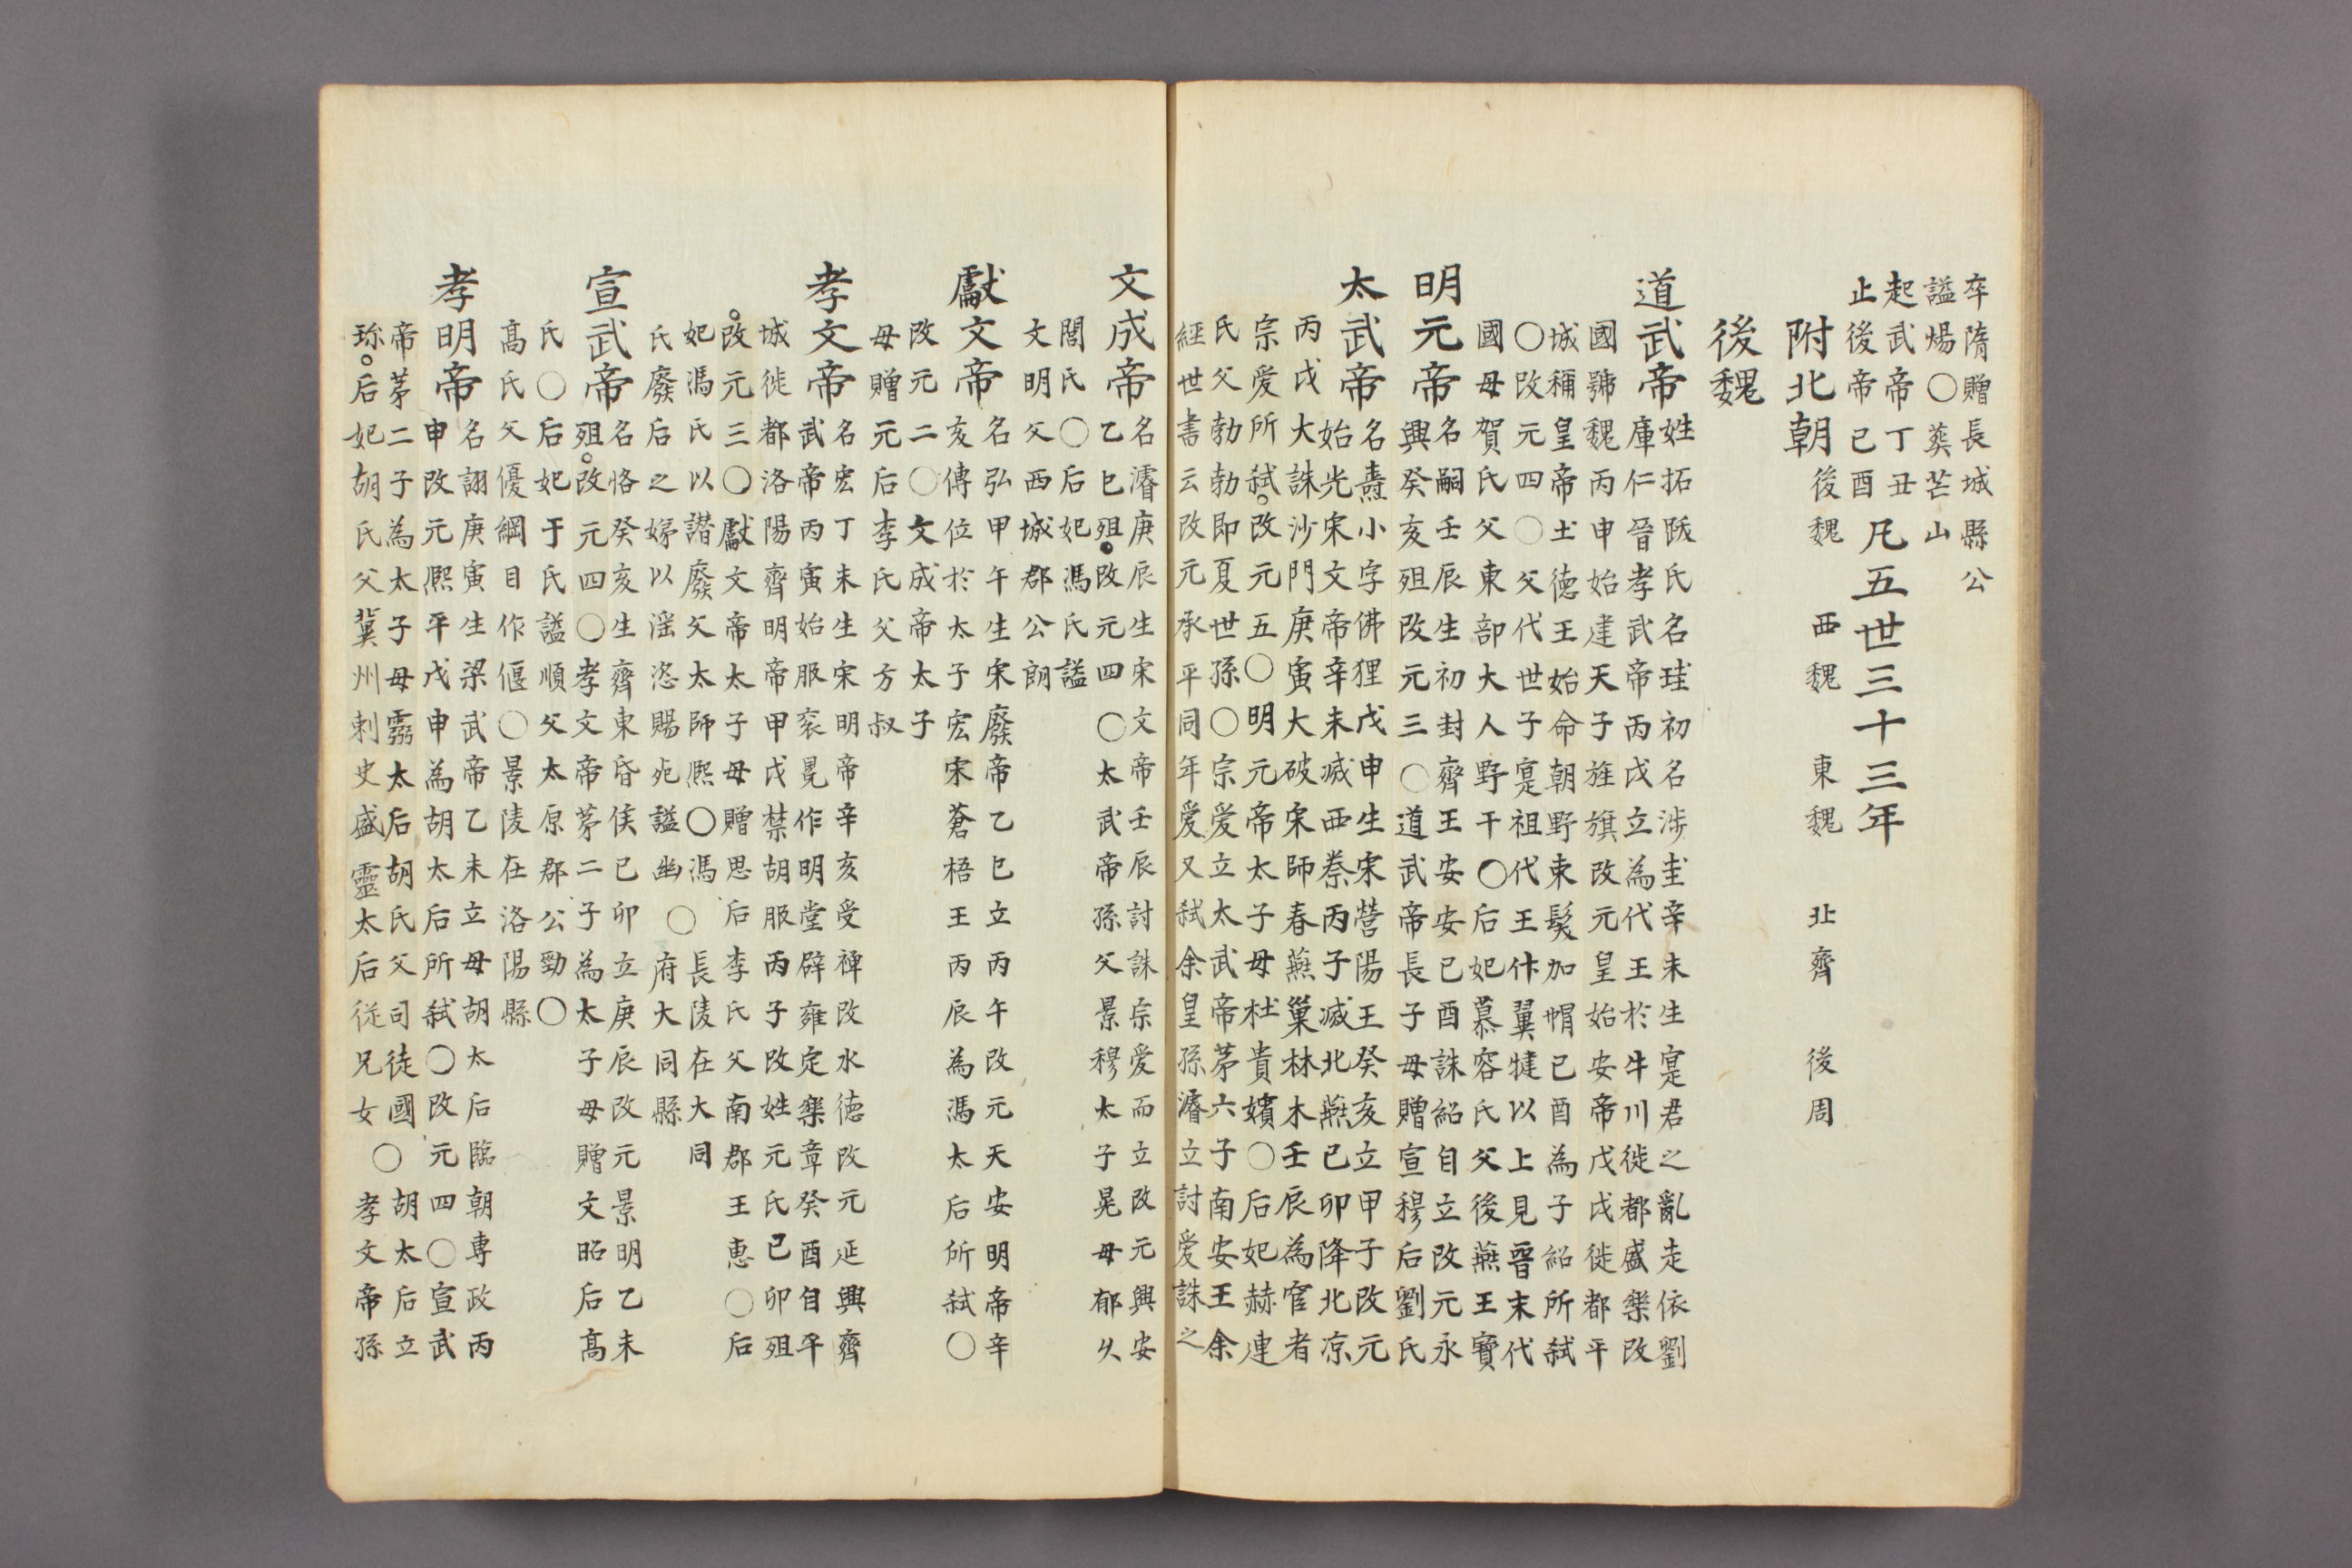 卒隋贈長城縣公
謚煬〇葬芒山
起武帝丁丑
止後帝己酉
凡五世三十三年
附北朝
後魏 西魏 東魏 北齊 後周
後魏
道武帝
姓拓跋氏名珪初名涉圭辛未生寔君之亂走依劉
庫仁晉孝武帝丙戌立為代王於牛川徙都盛樂改
國號魏丙申始建天子旌旗改元皇始安帝戊戌徙都平
城稱皇帝土德王始命朝野束髮加帽己酉為子紹所弒
〇改元四〇父代世子寔祖代王什翼犍以上見晉末代
國母賀氏父東部大人野干〇后妃慕容氏父後燕王寶
明元帝
名嗣壬辰生初封齊王安安己酉誅紹自立改元永
興癸亥殂改元三〇道武帝長子母贈宣穆后劉氏
太武帝
名燾小字佛狸戊申生宋營陽王癸亥立甲子改元
始光宋文帝辛未滅西㷰丙子滅北燕己卯降北涼
丙戌大誅沙門庚寅大破宋師春燕巢林木壬辰為宦者
宗愛所弒。改元五〇明元帝太子母杜貴嬪〇后妃赫連
氏父勃勃即夏世孫〇宗愛立太武帝茅六子南安王余
經世書云改元承平同年愛又弒余皇孫濬立討愛誅之
文成帝
名濬庚辰生宋文帝壬辰討誅宗愛而立改元興安
乙巳殂。改元四〇太武帝孫父景穆太子晃母郁久
閭氏〇后妃馮氏謚
文明父西城郡公朗
獻文帝
名弘甲午生宋廢帝乙巳立丙午改元天安明帝辛
亥傳位於太子宏宋蒼梧王丙辰為馮太后所弒〇
改元二〇文成帝太子
母贈元后李氏父方叔
孝文帝
名宏丁未生宋明帝辛亥受禅改水德改元延興齊
武帝丙寅始服袞冕作明堂辟雍定樂章癸酉自平
城徙都洛陽齊明帝甲戌禁胡服丙子改姓元氏己卯殂
。改元三〇獻文帝太子母贈思后李氏父南郡王惠〇后
妃馮氏以譖廢父太師熙〇馮
氏廢后之婦以滛恣賜死謚幽〇
長陵在大同
府大同縣
宣武帝
名恪癸亥生齊東昏侯己卯立庚辰改元景明乙未
殂。改元四〇孝文帝茅二子為太子母贈文昭后高
氏〇后妃于氏謚順父太原郡公勁〇
高氏父偃綱目作偃〇景陵在洛陽縣
孝明帝
名詡庚寅生梁武帝乙未立母胡太后臨朝専政丙
申改元熙平戊申為胡太后所弒〇改元四〇宣武
帝茅二子為太子母灵太后胡氏父司徒國
珎。后妃胡氏父冀州刺史盛靈太后從兄女
〇胡太后立
孝文帝孫